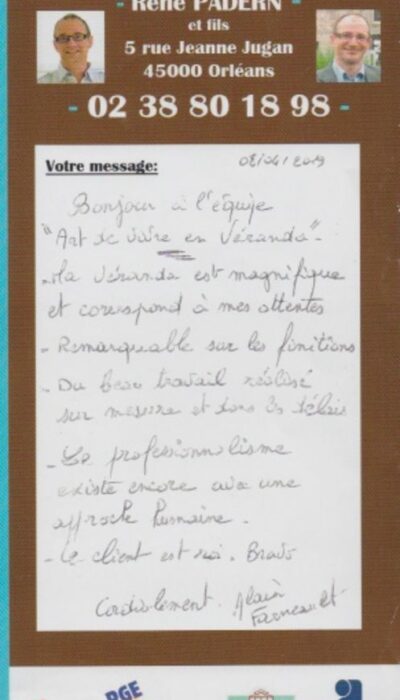 - René PADERN -
et fils
5 rue Jeanne Jugan
45000 Orléans
- 02 38 80 18 98 -
Votre message:
08/04/2019
Bonjour à l'équipe
"Art de vivre en Véranda".
- Ma véranda est magnifique
et correspond à mes attentes
- Remarquable sur les finitions
- Du beau travail réalisé
sur mesure et dans les délais
- Le professionnalisme
existe encore avec une
approche humaine.
- Le client est roi. Bravo
Cordialement. Alain
RGE